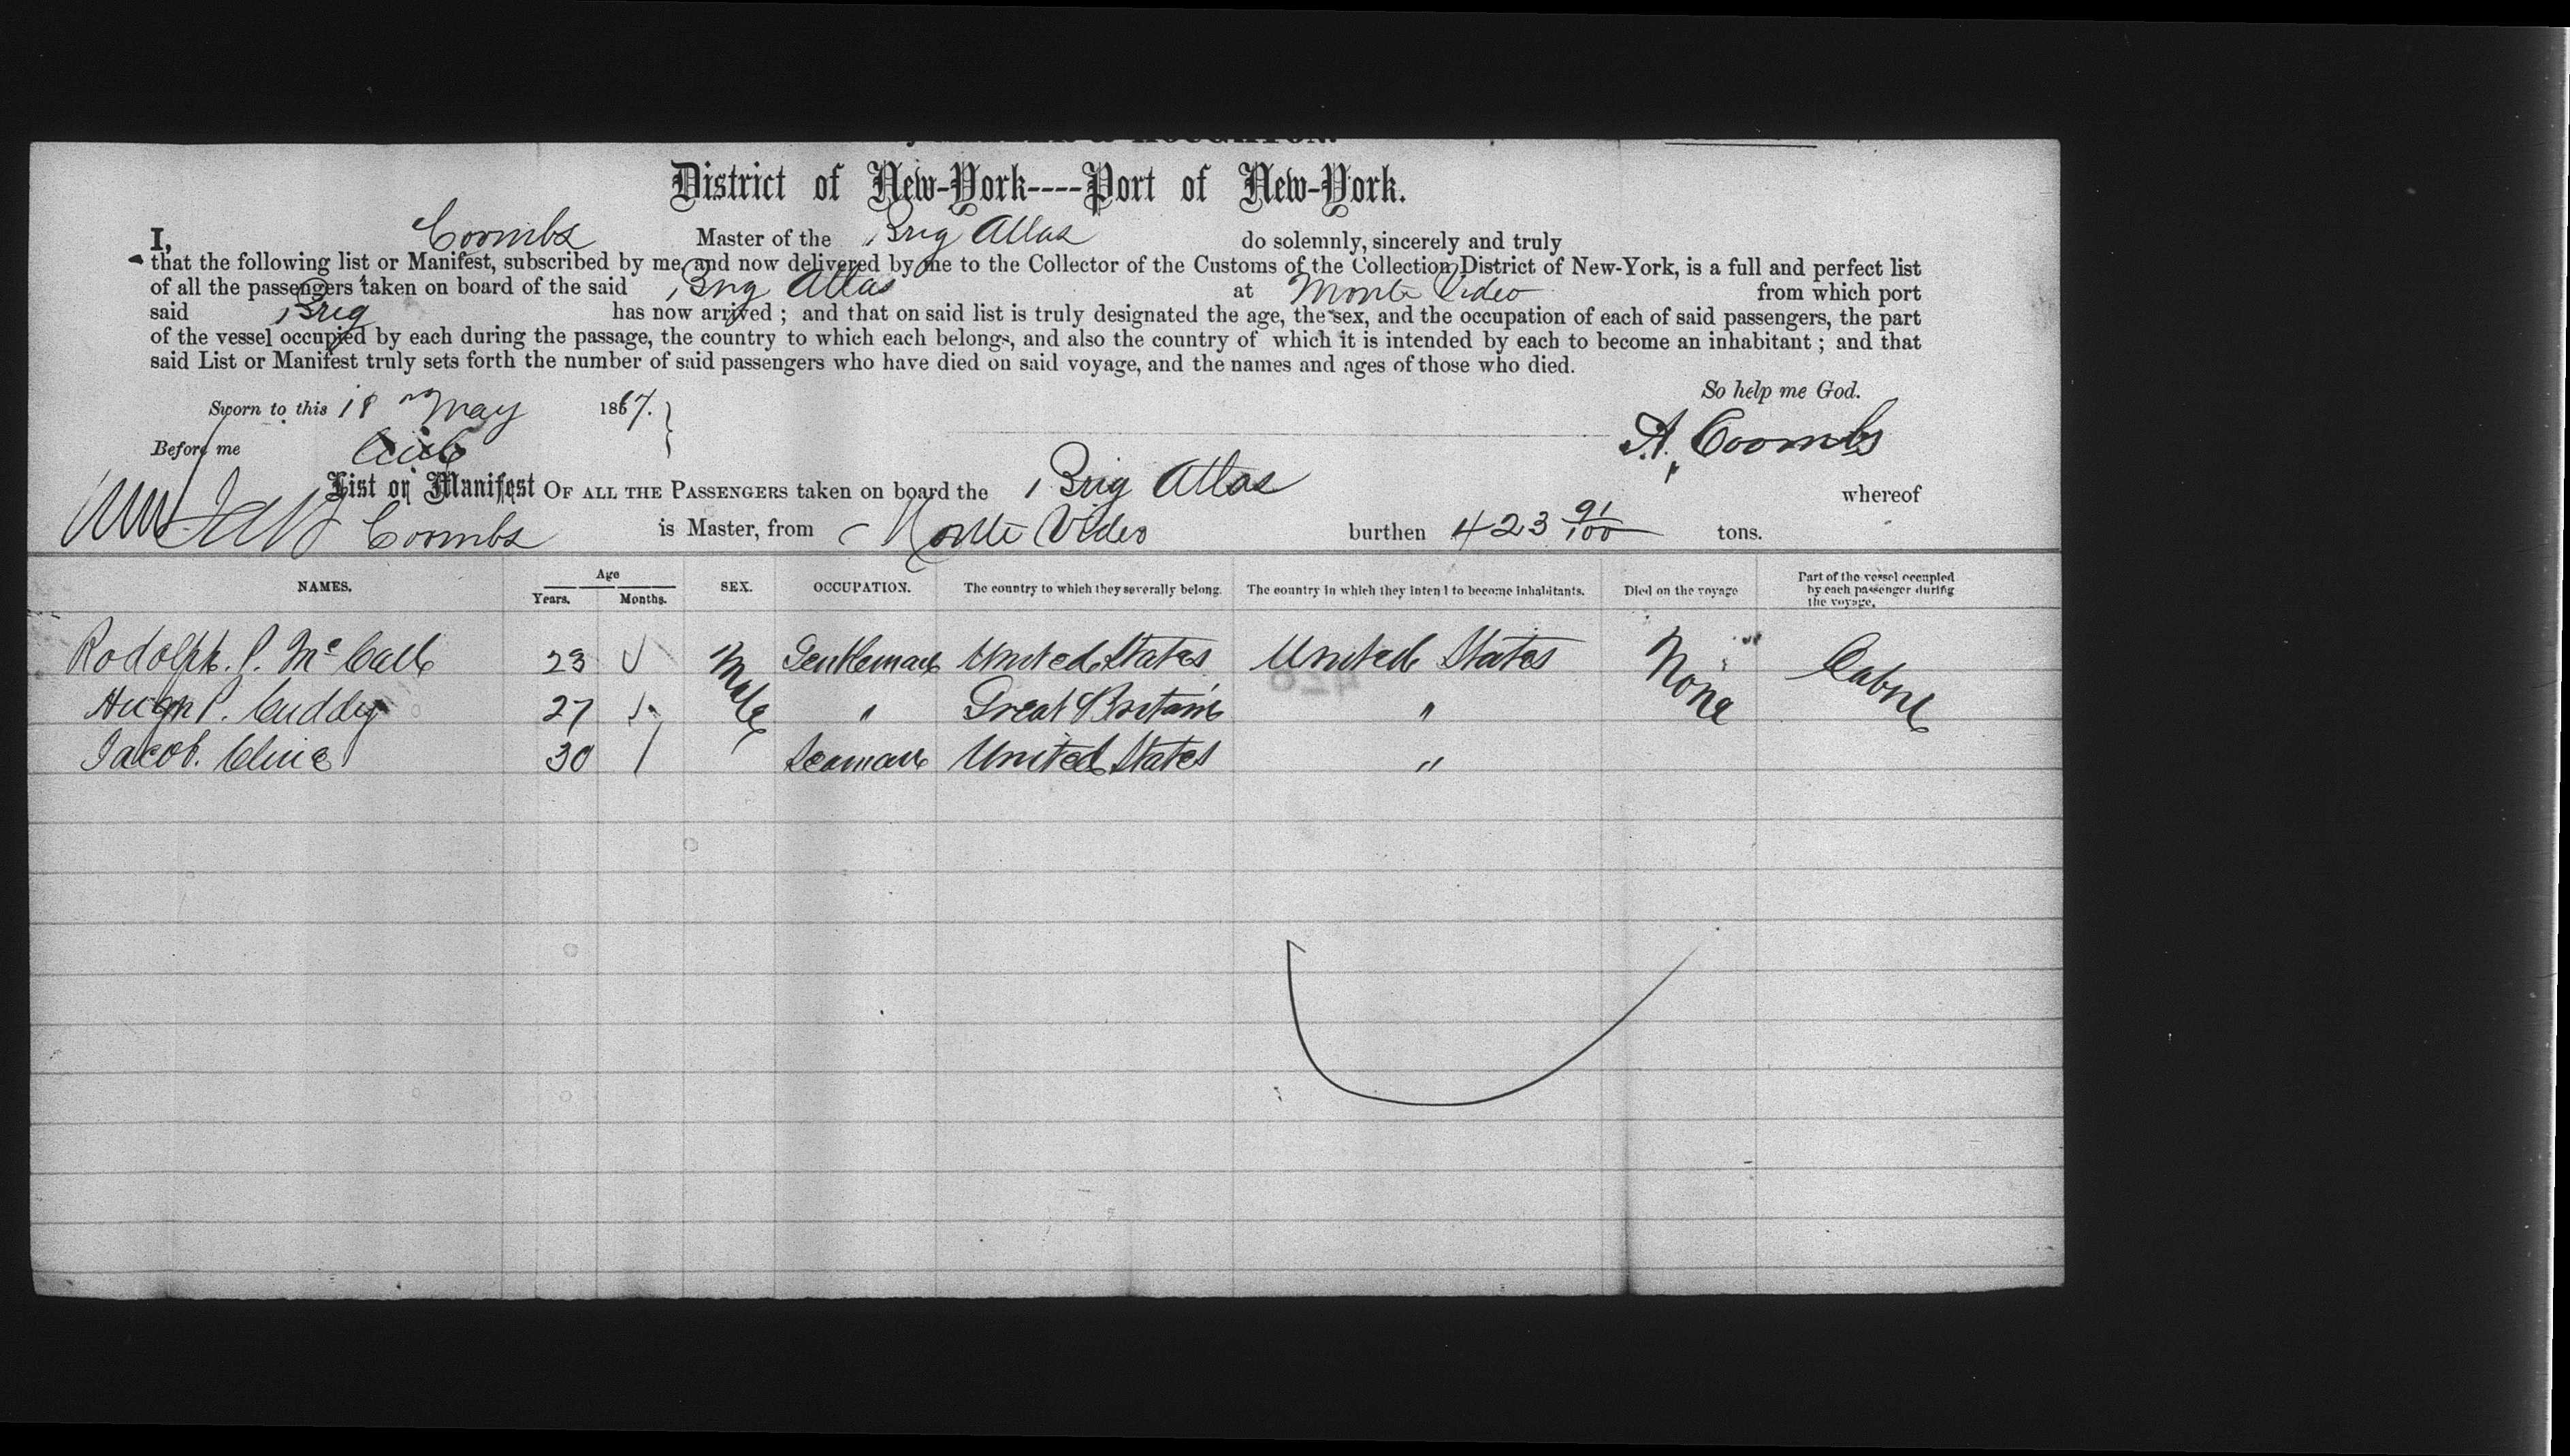 District of New-York----Port of New-York.
I, Coombs Master of the Brig Atlas do solemnly, sincerely and truly
that the following list or Manifest, subscribed by me, and now delivered by me to the Collector of the Customs of the Collection District of New-York, is a full and perfect list
of all the passengers taken on board of the said Brig Atlas at Monte Video from which port
said Brig has now arrived ; and that on said list is truly designated the age, the sex, and the occupation of each of said passengers, the part
of the vessel occupied by each during the passage, the country to which each belongs, and also the country of which it is intended by each to become an inhabitant ; and that
said List or Manifest truly sets forth the number of said passengers who have died on said voyage, and the names and ages of those who died.
So help me God.
Sworn to this 18 May 1867.
Before me
A. Coombs
List or Manifest OF ALL THE PASSENGERS taken on board the Brig Atlas whereof
Coombs is Master, from Monte Video burthen 423 91/100 tons.
NAMES. Age Years. Months. SEX. OCCUPATION. The country to which they severally belong. The country in which they intend to become inhabitants. Died on the voyage Part of the vessel occupied by each passenger during the voyage.
Rodolph. P. McCall 23 Male Gentleman United States United States None Cabin
Hugh P. Cuddy 27 " Great Britain "
Jacob. Cline 30 Seaman United States "